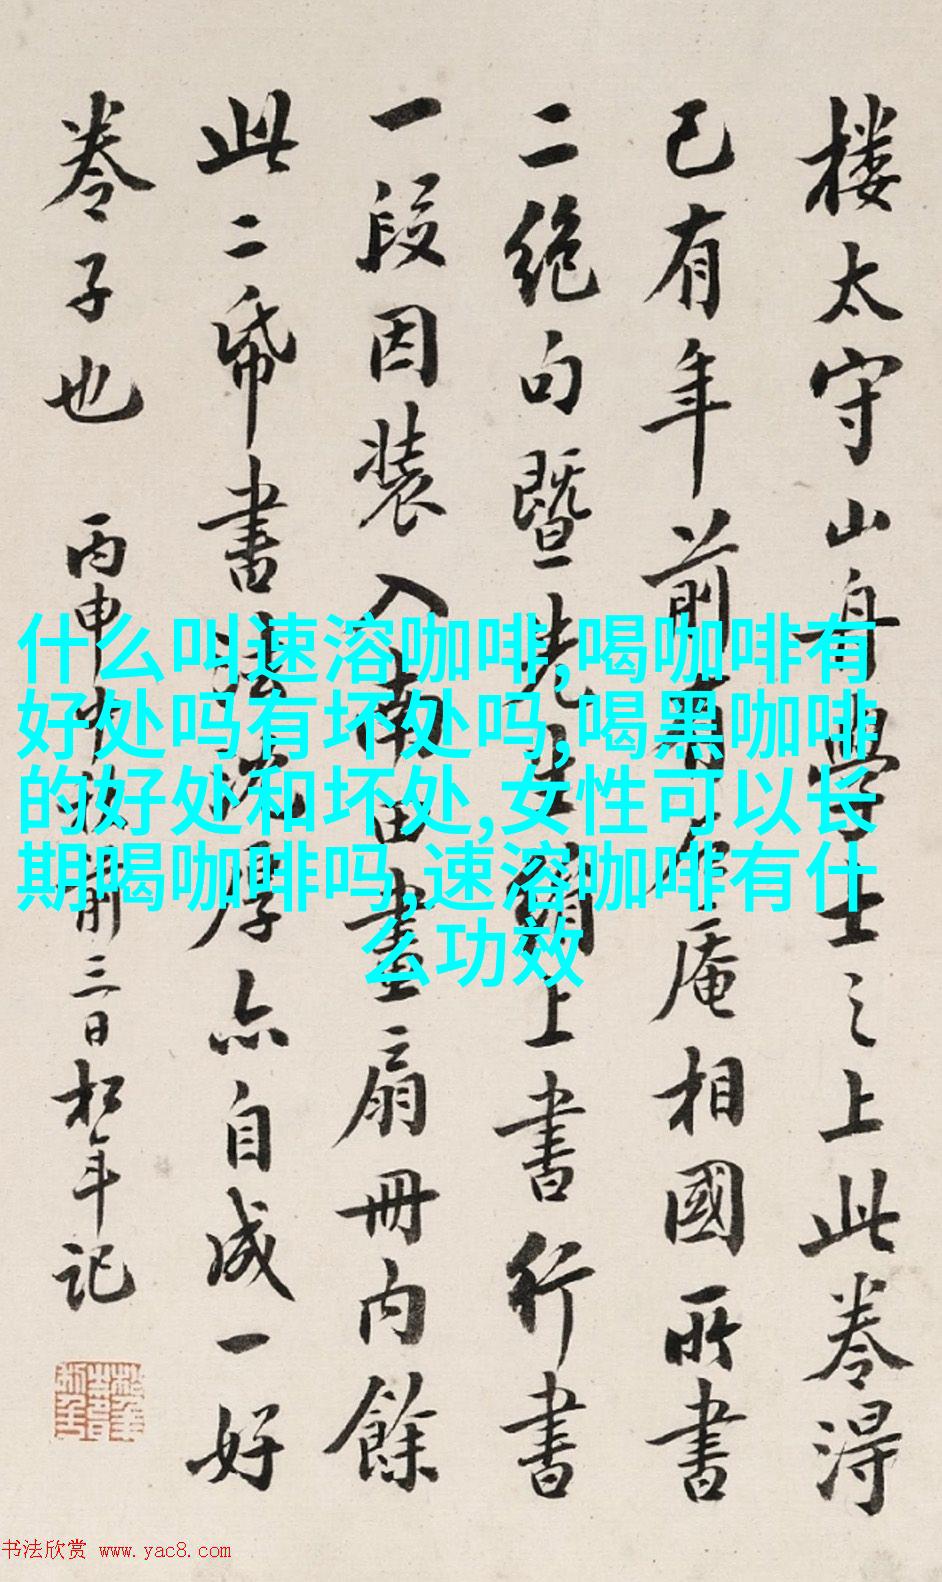 楼太守山舟學士之上此卷得
已有年前有 庵相國所書
二绝句暨先生 上書行書
一段因装入南田畫扇冊内餘
此二帋書法 厚亦自成一好
卷子也
丙申 前三日松年记
什么叫速溶咖啡,喝咖啡有
好处吗有坏处吗,喝黑咖啡
的好处和坏处,女性可以长
期喝咖啡吗,速溶咖啡有什
么功效
书法欣赏 www.yac8.com